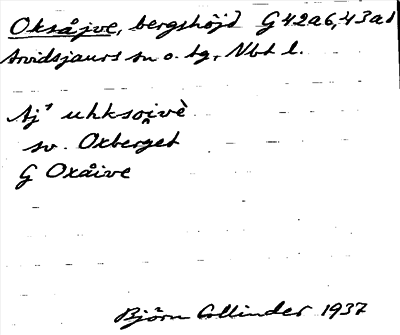 Oksåjve, bergshöjd G42a6,43a1
Arvidsjaurs sn o. tg, Nbt l.
Aj' uhksoi̭vè
sv. Oxberget
G Oxåive
Björn Collinder 1937